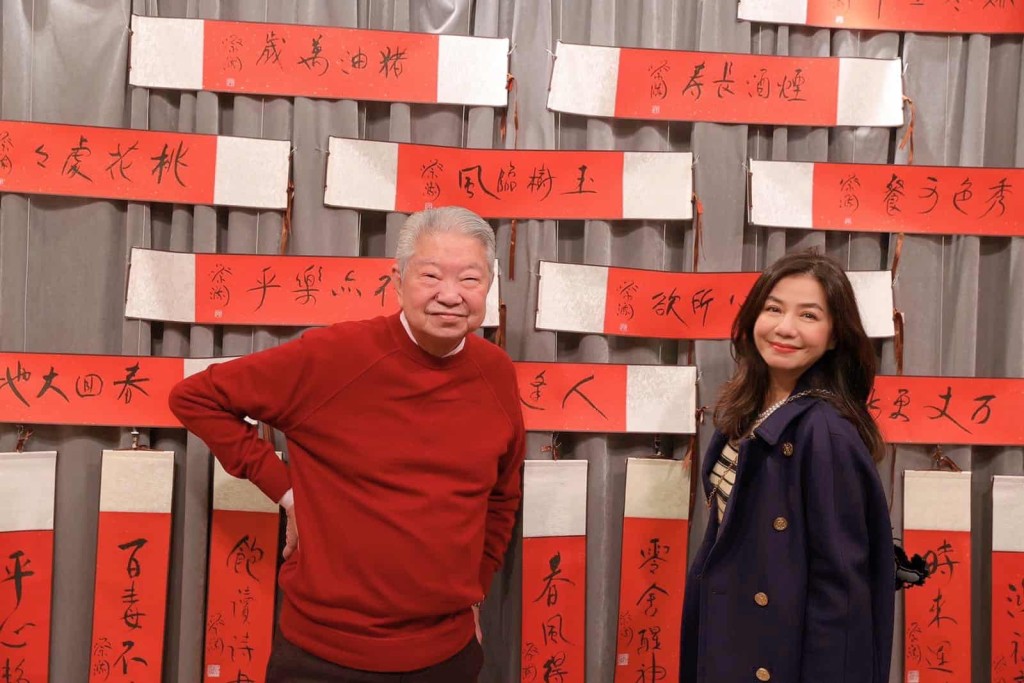 猪油萬歲 蔡瀾
煙酒長寿 蔡瀾
桃花處々 蔡瀾
玉樹臨風 蔡瀾
秀色可餐 蔡瀾
亦樂乎 蔡瀾
所欲 蔡瀾
春回大地
人逢
万丈更
平心
百毒不 蔡瀾
飽讀詩 蔡瀾
春風得 蔡瀾
零舍醒神 蔡瀾
時來運 蔡瀾